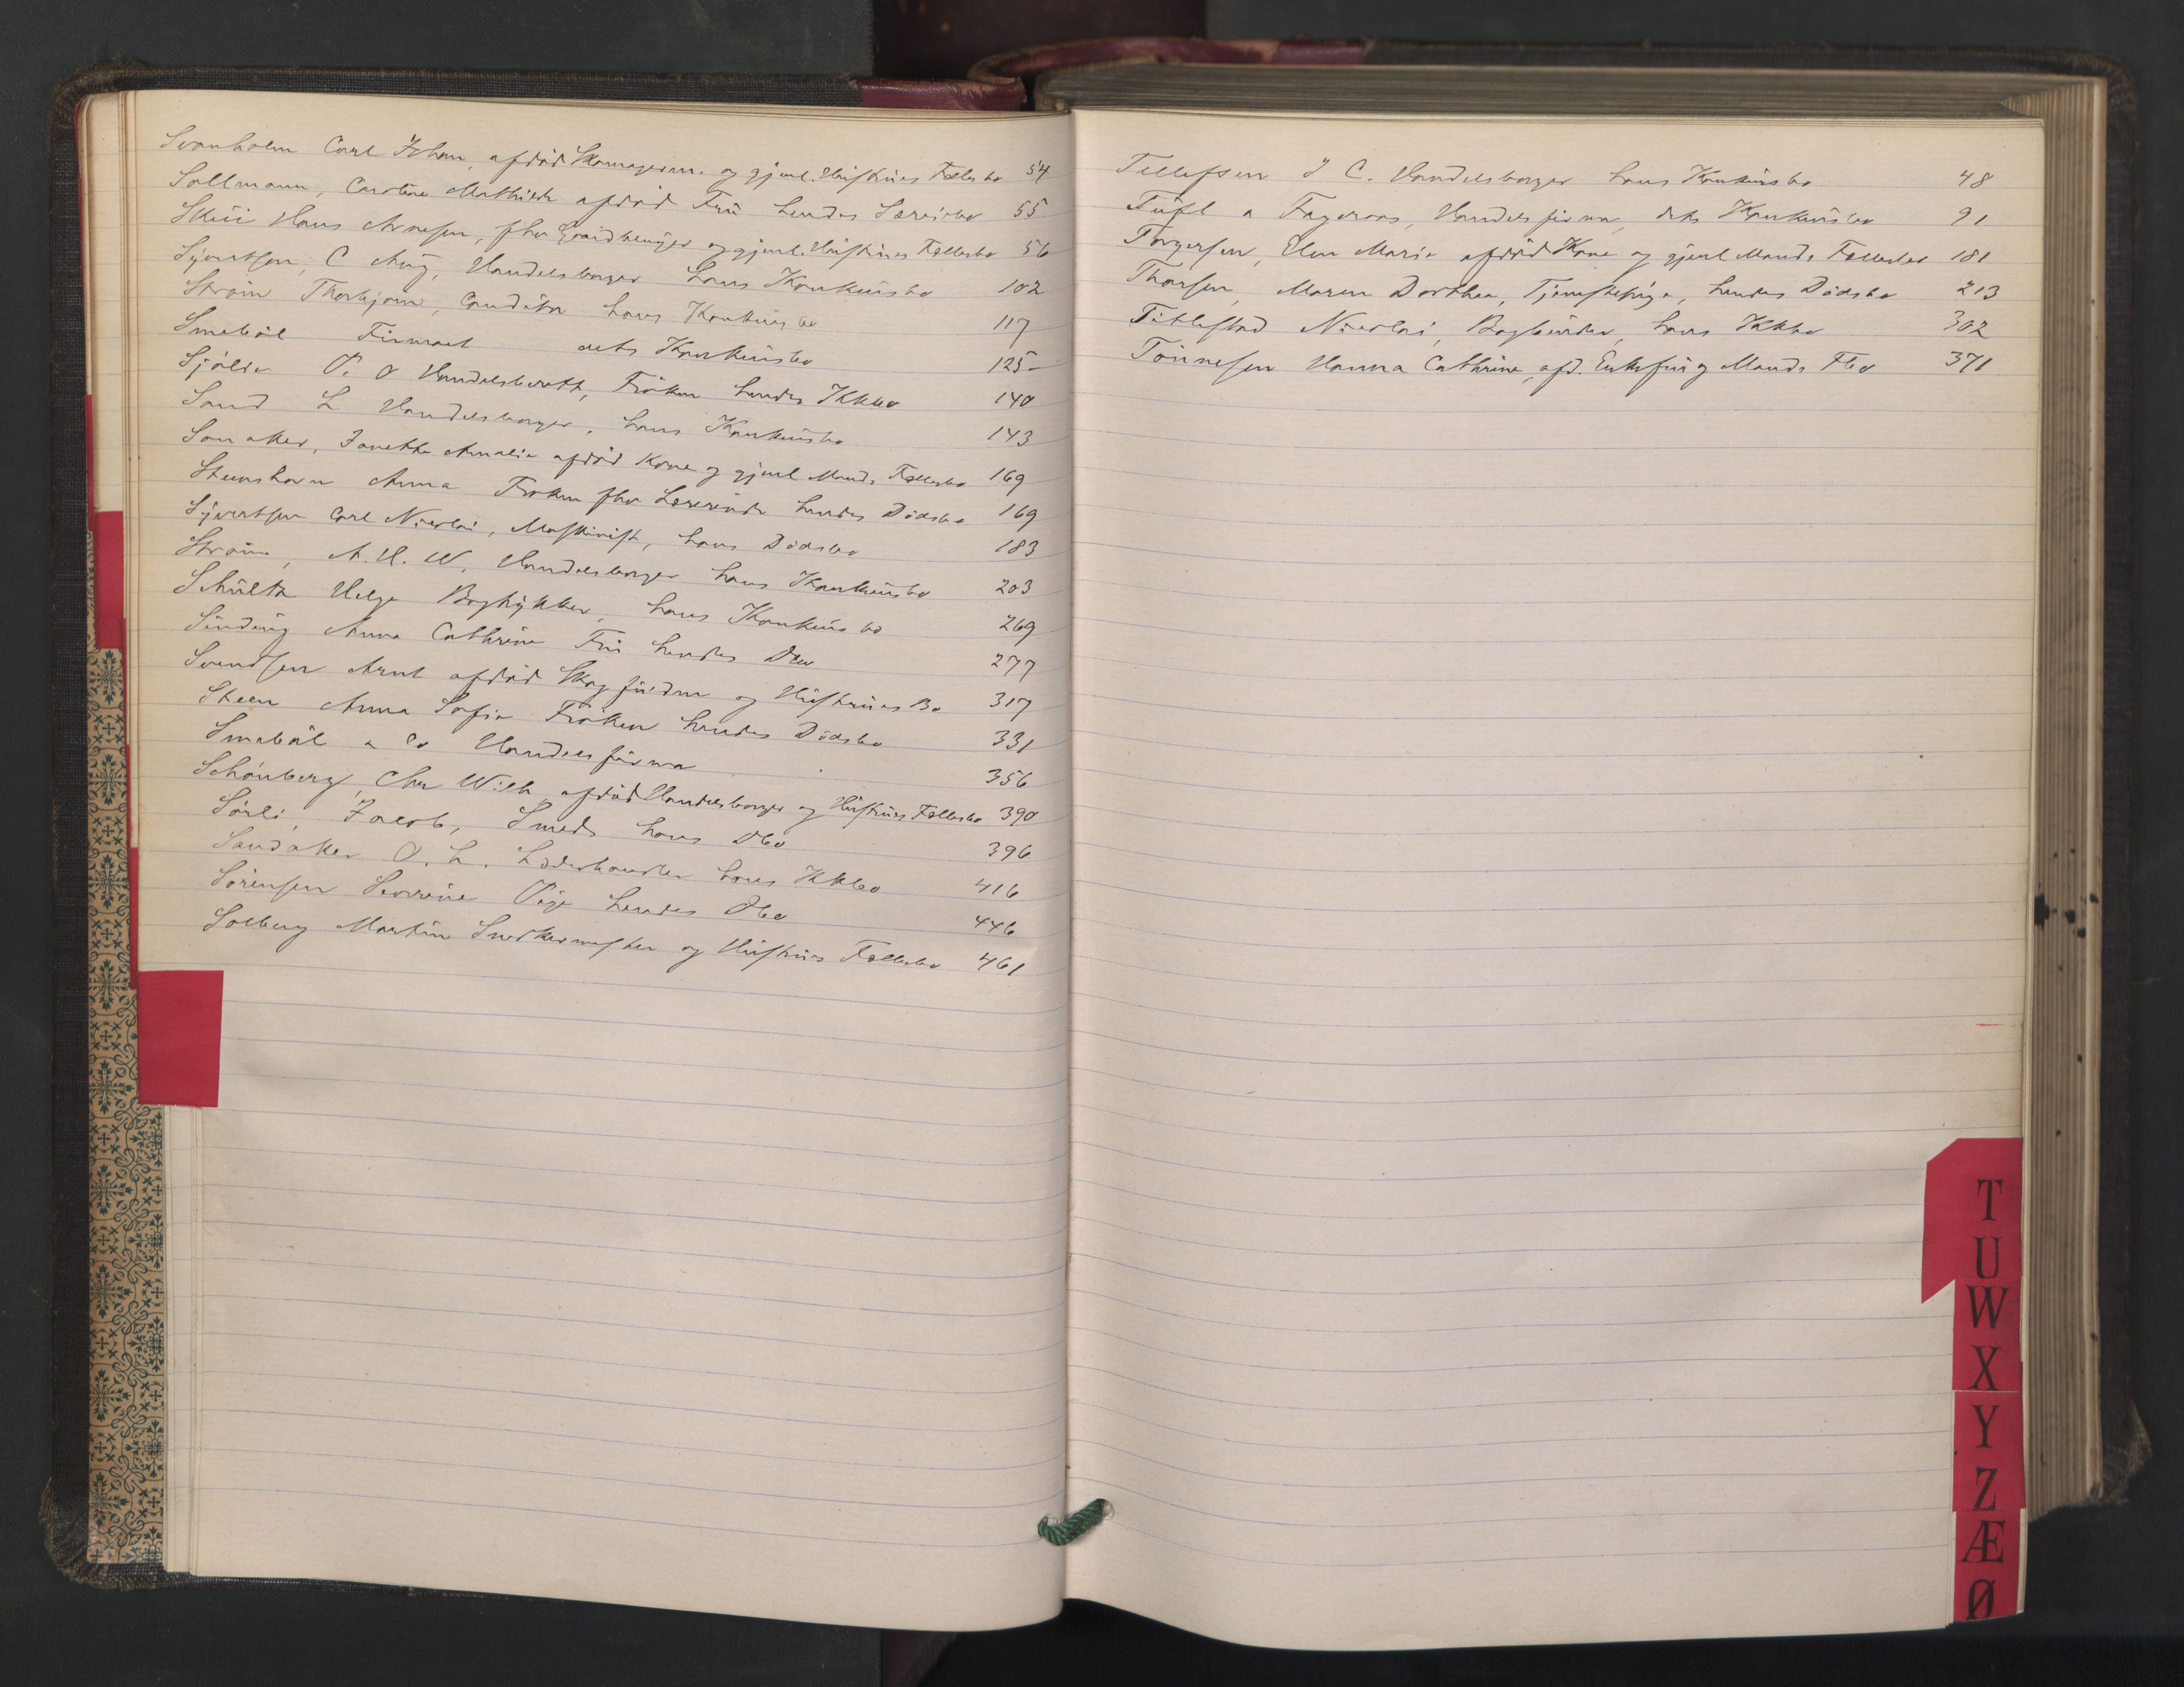 Svanholm Carl Johan, afdød Skomagerm. og gjenl. Hustrues Fællesbo 54
Sollmann, Caroline Mathilde afdød Frü hendes Særeiebo 55
Sküi Hans Arnesen, fhv Gaardbrüger og gjenl. Hüstrües Fællesbo 56
Syvertsen, C Aug, Handelsborger hans Konkürsbo 102
Strøm Thorbjørn, Conditor hans Konkürsbo 117
Smebøl Firmaet dets Konkürsbo 125
Sjölie P. O Handelsberett, Fröken hendes Kkbo 140
Sand L Handelsborger, hans Konkürsbo 143
Sonaker, Janette Amalie afdød Kone og gjenl Mands Fællesbo 169
Steenshorn Anna Frøken fhv Lærerinde hendes Dödsbo 169
Syvertsen Carl Nicolai, Maskinist, hans Dödsbo 183
Ström, A. H. W. Handelsborger hans Konkürsbo 203
Schültz Helge Bogtykker, hans Konkürsbo 269
Sinding Anna Cathrine Frü hendes Dbo 277
Svendsen Arnt afdød Skogfürdm og Hüstrües Bo 317
Steen Anna Sofie Fröken hendes Dödsbo 331
Smebøl & Co Handelsfirma 356
Schønberg, Chr Wilh. afdød Handelsborger og Hüstrües Fællesbo 390
Sörli, Jacob, Smeds hans Dbo 396
Sandaker O. L. Læderhandler hans Kkbo 416
Sörensen Severine Pige hendes Dbo 446
Solberg Martin Snedkermester og Hüstrües Fællesbo 461
Tellefsen J C. Handelsborger hans Konkürsbo 48
Tüfl & Fageraas, Handelsfirma, dets Konkürsbo 91
Torgersen, Elen Marie afdød Kone og gjenl Mands Fællesbo 181
Thorsen, Maren Dorthea, Tjenestepige, hendes Dödsbo 213
Titlestad Nicolai, Bogbinder, hans Kkbo 302
Tönnesen Hanna Cathrine, afd. Enkefru og Mands Fbo 371
T
U
W
X
Y
Z
Æ
Ø